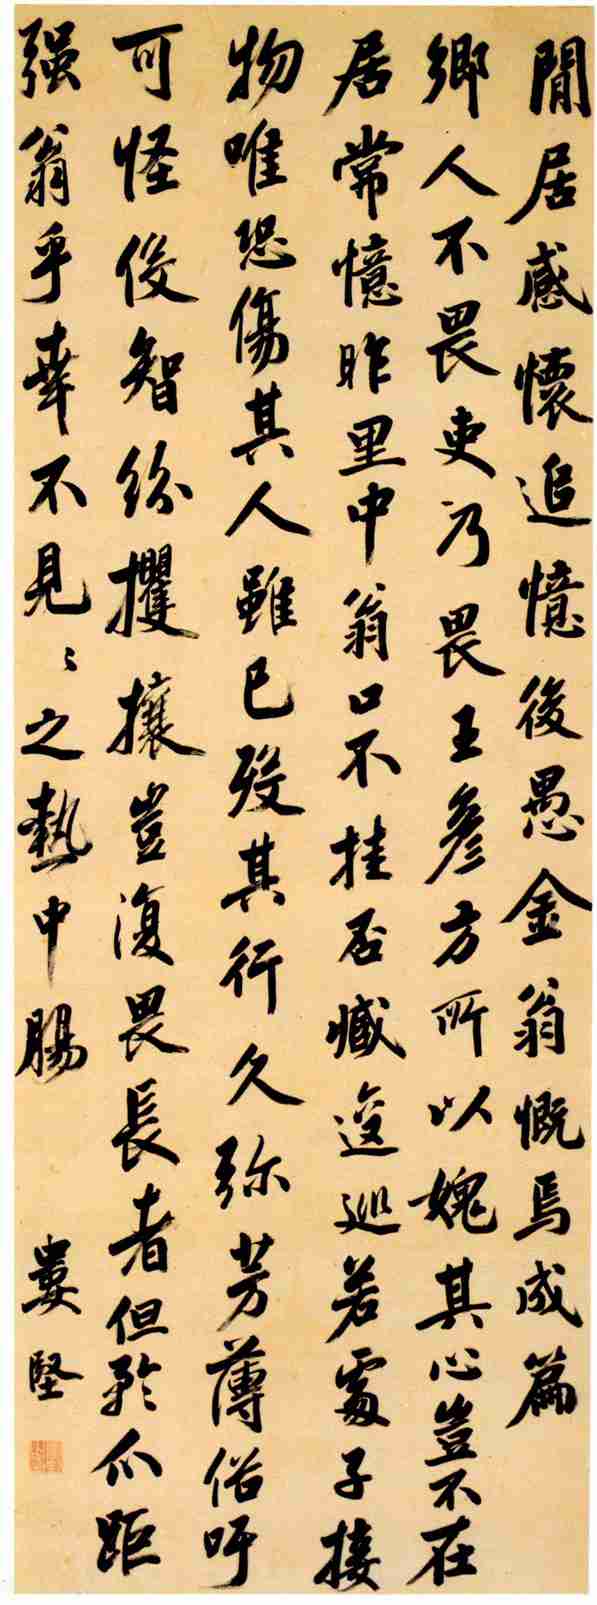 閒居感懷追憶後愚金翁慨焉成篇
鄉人不畏吏乃畏王彥方所以媿其心豈不在
居常憶昨里中翁口不挂否臧逡巡若處子接
物唯恐傷其人雖已歿其行久弥芳薄俗吁
可怪伎智紛攫攘豈復畏長者但矜爪距
强翁乎幸不見〻之熱中腸
婁堅